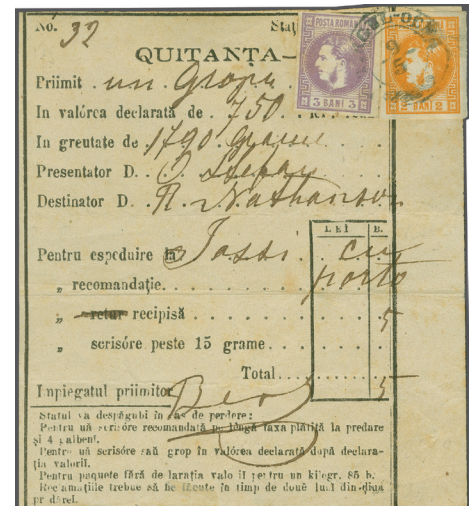 No. 32
Staț
POSTA ROMAN
3 BANI 3
2 BANI 2
QUITANȚA—
Priimit un Gropu
In valórea declarată de 750
In greutate de 1790 Grame
Presentator D. . Stefan
Destinator D. . Nathanson
LEI B.
Pentru espeduire la Jassi . . cu
„ recomandație . . . . porto
„ retur recipisă . . . . 5
„ scrisóre peste 15 grame . . .
Total . . . . 5
Impiegatul priimitor
Statul va despăgubi în cas de perdere:
Pentru uă scrisóre recomandată pe lêngă taxa plătită la predare
și 4 galbeni.
Pentru uă scrisóre saŭ grop în valórea declarată după declara-
ția valorii.
Pentru paquete fără de larația valo iĭ pentru un kilogr. 85 b.
Reclamațiile trebue să fie făcute în timp de doué luni din diua
pr dărei.